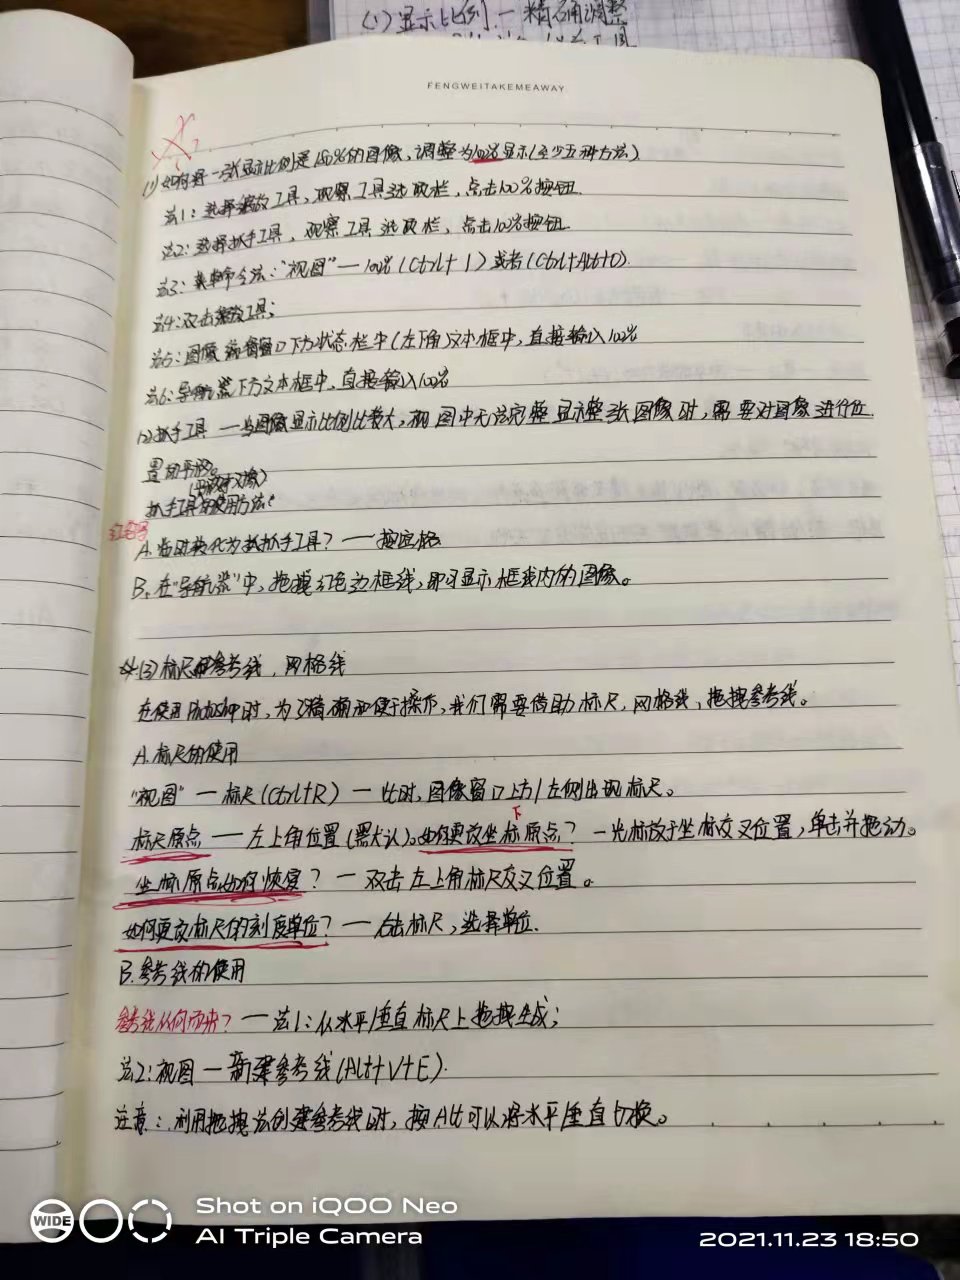 (1)显示比例.一精确调整
FENGWEITAKEMEAWAY
(1)如何将一张显示比例是150%的图像,调整为100%显示(至少五种方法)
法1:选择缩放工具,观察工具选取栏,点击100%按钮.
法2:选择抓手工具,观察工具选取栏,点击100%按钮.
法3:菜单命令法:"视图"—100%(Ctrl+1)或者(Ctrl+Alt+0).
法4:双击缩放工具;
法5:图像窗口下方状态栏中(左下角)文本框中,直接输入100%
法6:导航器下方文本框中,直接输入100%
(2)抓手工具—当图像显示比例比较大,视图中无法完整显示整张图像时,需要对图像进行位
置的平移。
抓手工具的使用方法:
A.临时转化为抓手工具?—按空格
B.在"导航器"中,拖拽红色边框线,即可显示框线内的图像。
(3)标尺和参考线,网格线
在使用Photoshop时,为了精确和便于操作,我们需要借助标尺,网格线,拖拽参考线。
A.标尺的使用
"视图"—标尺(Ctrl+R)—此时,图像窗口上方/左侧出现标尺。
标尺原点—左上角位置(默认)。如何更改坐标原点?—光标放于坐标交叉位置,单击并拖动。
坐标原点如何恢复?—双击左上角标尺交叉位置。
如何更改标尺的刻度单位?—右击标尺,选择单位.
B.参考线的使用
参考线从何而来?—法1:从水平/垂直标尺上拖拽生成;
法2:视图—新建参考线(Alt+V+E).
注意:利用拖拽法创建参考线时,按Alt可以将水平/垂直切换。
WIDE
Shot on iQOO Neo
AI Triple Camera
2021.11.23 18:50